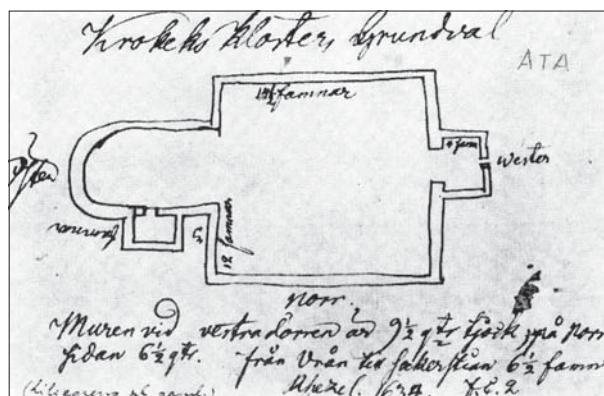 Krokeks Klosters Grundval
ATA
14½ famnar
Östen
4 famn
Wester
12 famnar
Norr.
Muren vid vestra dörren är 9½ qtr tjock, på Norr
sidan 6½ qtr. från Vrån till sakerstian 6½ famn
Rhezel. 1634.